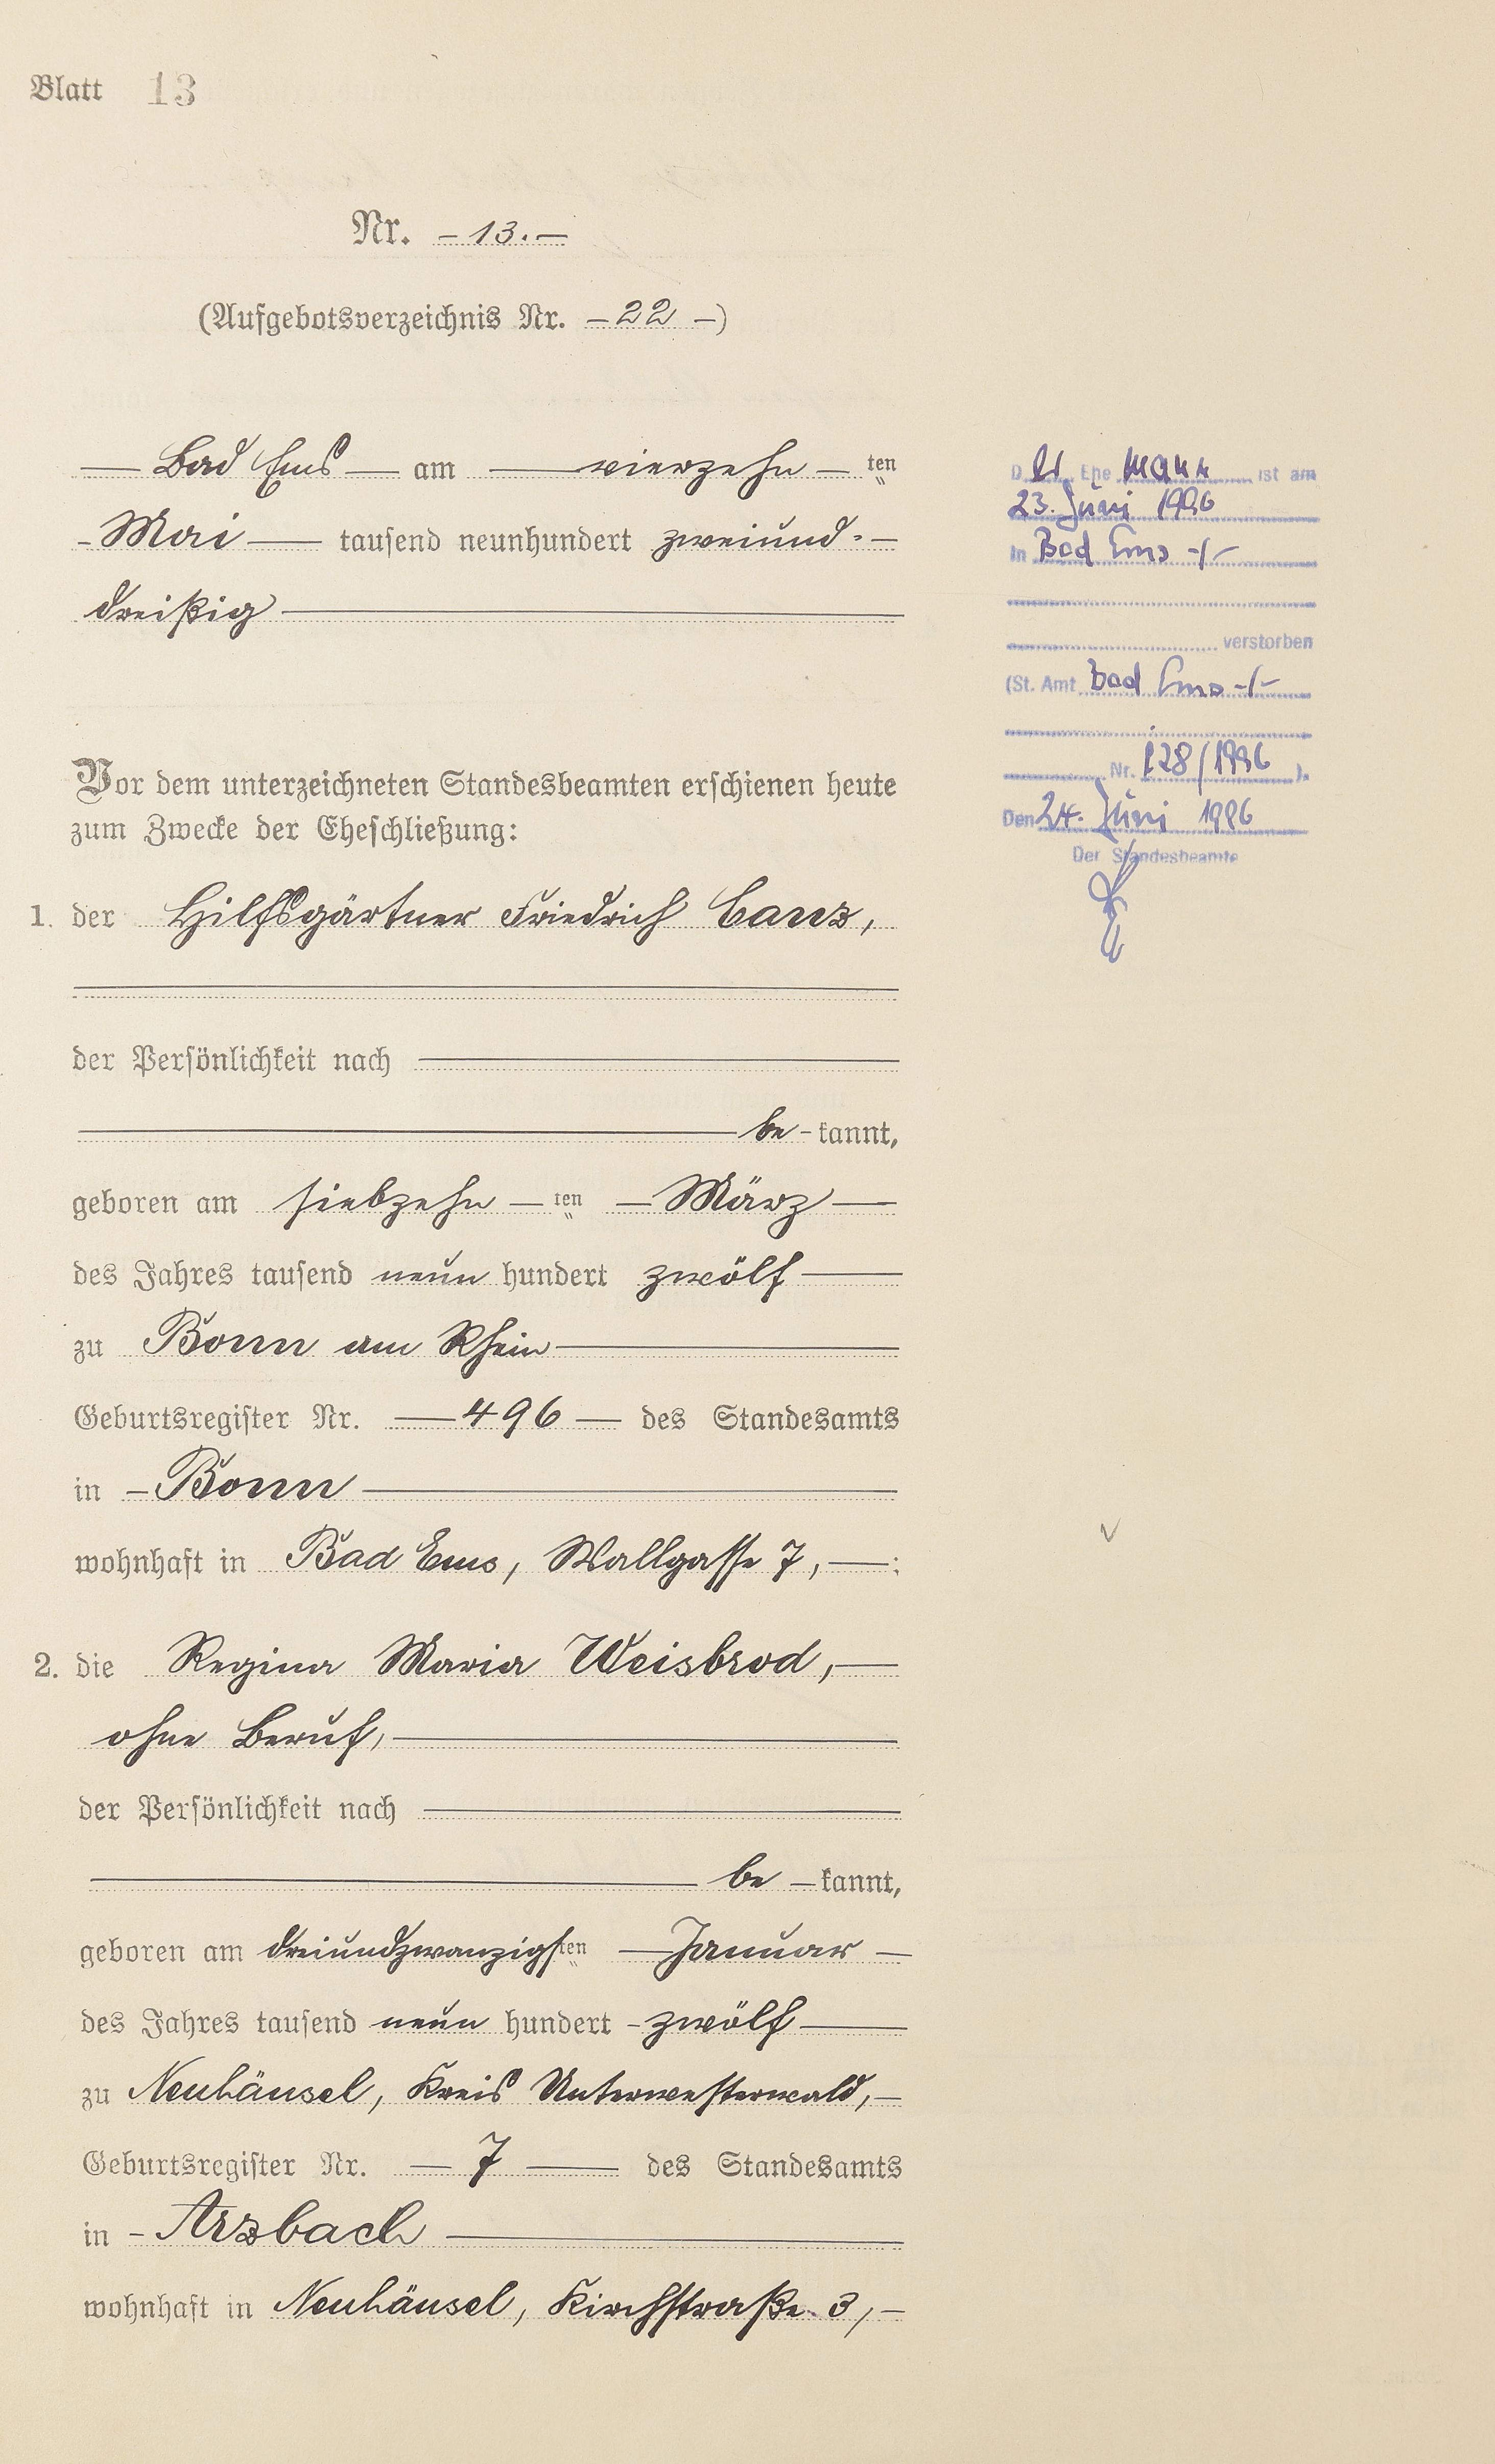 Blatt 13
Nr. - 13. -
(Aufgebotsverzeichnis Nr. - 22 -)
Bad Ems am vierzehn ten
Mai tausend neunhundert zweiund-
dreißig
Vor dem unterzeichneten Standesbeamten erschienen heute
zum Zwecke der Eheschließung:
1. der Hilfsgärtner Friedrich Canz,
der Persönlichkeit nach
be - kannt,
geboren am siebzehn ten März
des Jahres tausend neun hundert zwölf
zu Bonn am Rhein
Geburtsregister Nr. 496 des Standesamts
in Bonn
wohnhaft in Bad Ems, Wallgasse 7, :
2. die Regina Maria Weisbrod,
ohne Beruf,
der Persönlichkeit nach
be - kannt,
geboren am dreiundzwanzigsten Januar
des Jahres tausend neun hundert zwölf
zu Neuhäusel, Kreis Unterwesterwald,
Geburtsregister Nr. 7 des Standesamts
in Arzbach
wohnhaft in Neuhäusel, Kirchstraße 3,
D er Ehe mann ist am
23. Juni 1996
in Bad Ems -/-
verstorben
(St. Amt Bad Ems -/-
Nr. 128/1996 ).
Den 24. Juni 1996
Der Standesbeamte